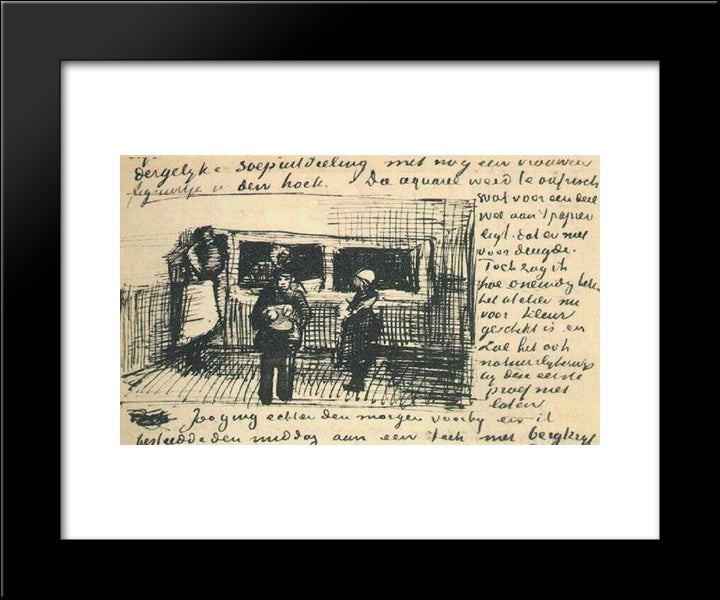 dergelyke soepuitdeeling met nog een vrouwen
figuurtje in den hoek. Da aquarel werd te aufrisch
wat voor een deel
wel aan 't papier
ligt dat er niet
voor deugde.
Toch zag ik
hoe oneindig beter
het atelier nu
voor kleur
geschikt is en
zal het ook
natuurlijkerwijs
by deze eerste
proef niet
laten
Zoo ging echter den morgen voorby en ik
besteedde den middag aan een teek met bergkryt